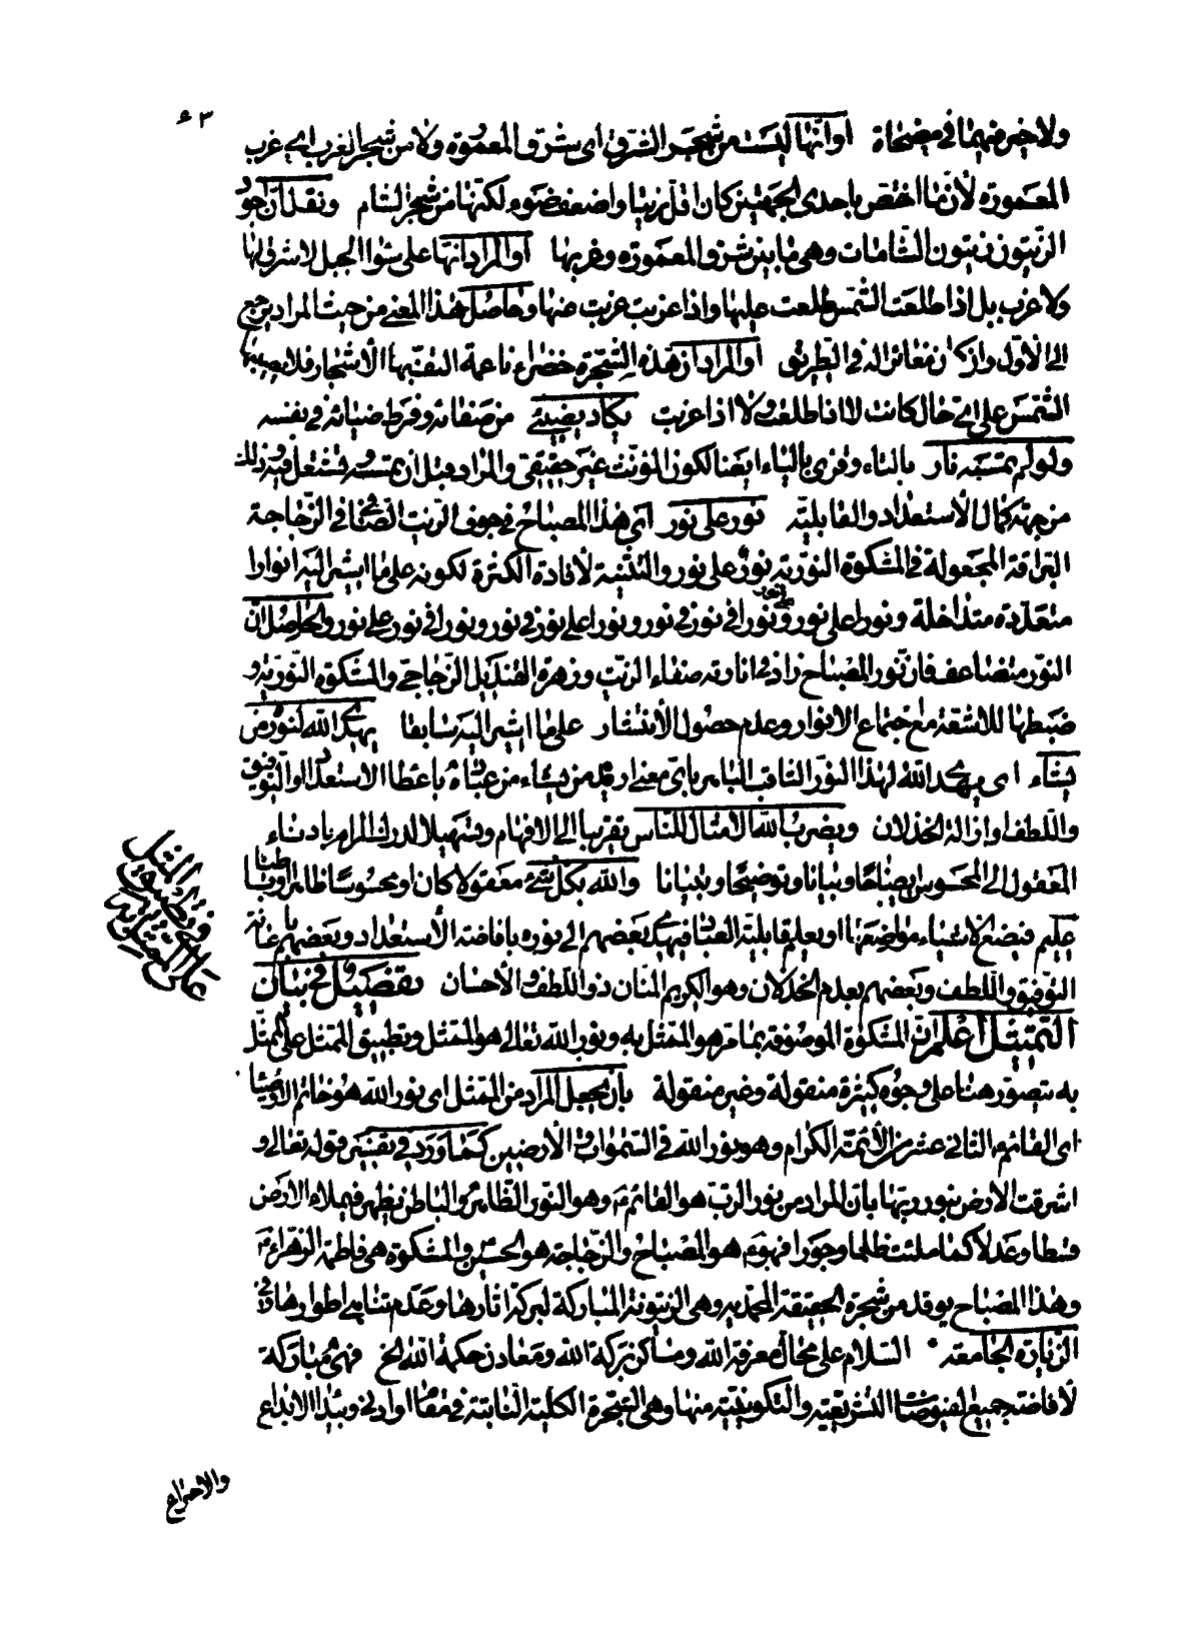 ٤٣
ولا خير فيهما في مضحاة او انّها ليست من شجر الشرق اي شرق المعمورة ولا من شجر الغرب اي غرب
المعمورة لأن ما اختص باحدى الجهتين كان اقل زيتا واضعف ضوء لكنها من شجر الشام ونقل ان اجود
الزيتون زيتون الشامات وهي ما بين شرق المعمورة وغربها او المراد انها على سواء الجبل لا شرق لها
ولا غرب بل اذا طلعت الشمس طلعت عليها واذا غربت غربت عنها وحاصل هذا المعنى من حيث المراد يرجع
الى الاول وان كان مغائرا له في الطريق او المراد ان هذه الشجرة خضراء ناعمة التفت بها الأشجار فلا يصيبها
الشمس على اي حال كانت لا اذا طلعت ولا اذا غربت يكاد يضيئ من صفائه وفرط ضيائه في نفسه
ولو لم تمسسه نار بالتاء وقرئ بالياء ايضا لكون المؤنث غير حقيقي والمراد قبل ان تمسه فتشتعل فيه وذلك
من جهة كمال الأستعداد والقابلية نور على نور اي هذا المصباح في جوف الزيت الصافي في الزجاجة
البراقة المجعولة في المشكوة النورية نور على نور والتثنية لأفادة الكثرة لكونه على ما اشير اليه انوارا
متعددة متداخلة ونورا على نور ونورا في نور في نور ونورا على نور في نور ونورا في نور على نور والحاصل ان
النور متضاعف فان نور المصباح زاد في انارته صفاء الزيت وزهرة القنديل الزجاجي والمشكوة النورية و
ضبطها للاشعة مع اجتماع الانوار وعدم حصول الأنتشار على ما اشير اليه سابقا يهدي الله لنوره من
يشاء اي يهدي الله لهذا النور الثاقب الباهر باي معنى اريد من يشاء من عباده باعطاء الاستعداد او التوفيق
واللطف وازالة الخذلان ويضرب الله الامثال للناس تقريبا الى الافهام وتسهيلا لدرك المرام بادناء
المعقول الى المحسوس ايضاحا وبيانا وتوضيحا وتبيانا والله بكل شئ معقولا كان او محسوسا ظاهرا وباطنا
عليم فيضع الاشياء مواضعها او يعلم قابلية العباد فيهدي بعضهم الى نوره بافاضة الأستعداد وبعضهم باعانة
التوفيق واللطف وبعضهم بعدم الخذلان وهو الكريم المنان ذو اللطف والأحسان تفصيل في بيان
التمثيل اعلم ان المشكوة الموصوفة بما مر هو الممثل به ونور الله تعالى هو الممثل وتطبيق الممثل على الممثل
به يتصور هنا على وجوه كثيرة منقولة وغير منقولة بأن يجعل المراد من الممثل اي نور الله هو خاتم الاوصياء
اي القائم الثاني عشر من الأئمة الكرام وهو نور الله في السموات والأرضين كما ورد في تفسير قوله تعالى و
اشرقت الارض بنور ربها بان المراد من نور الرب هو القائم ع وهو النور الظاهر والباطن يظهر فيملاء الارض
قسطا وعدلا كما ملئت ظلما وجورا فهو ع هو المصباح والزجاجة هو الحسين والمشكوة هي فاطمة الزهراء ع
وهذا المصباح يوقد من شجرة الحقيقة المحمدية وهي الزيتونة المباركة لبركة اثارها وعدم تناهي اطوارها وفي
الزيارة الجامعة السلام على محال معرفة الله ومساكن بركة الله ومعادن حكمة الله الخ فهي مباركة
لأفاضة جميع الفيوضات التشريعية والتكوينية منها وهي الشجرة الكلية الثابتة في مقام او ادنى ومبدأ الابداع
والاختراع